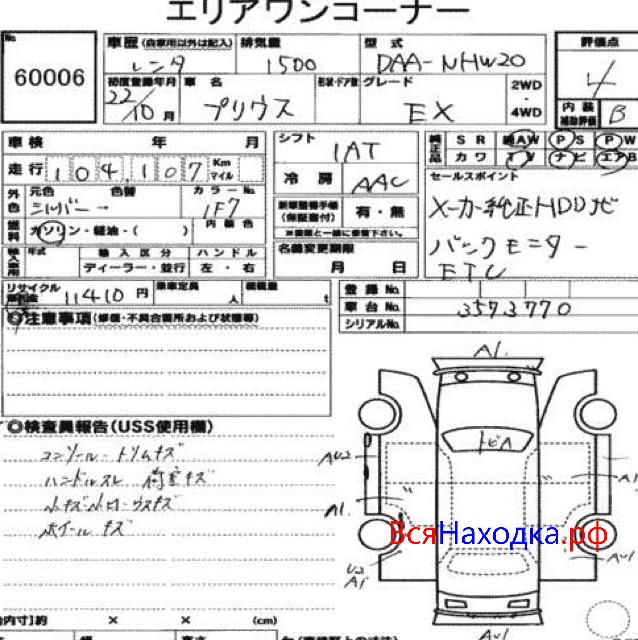 エリアワンコーナー
No.
60006
車歴 (自家用以外は記入) 排気量 型式 評価点
レンタ 1500 DAA-NHW20 4
初度登録年月 車名 形状・ドア数 グレード 2WD・4WD
22/10月 プリウス EX
内装補助評価 B
車検 年 月
走行 104,107 Km マイル
シフト 1AT
冷房 AAC
純正品 SR AW PS PW
カワ TV ナビ エアB
外色 元色 色替 カラーNo. 内装色
シルバー → 1F7
燃料 ガソリン・軽油・( )
新車整備手帳(保証書付) 有・無
セールスポイント
メーカー純正HDDナビ
バックモニター
ETC
輸入車用 年式 輸入区分 ハンドル
ディーラー・並行 左・右
名義変更期限
月 日
リサイクル預託金 11410円 乗車定員 人 積載量 t
登録No.
車台No. 3573770
シリアルNo.
◎注意事項 (修復・不具合箇所および状態等)
◎検査員報告(USS使用欄)
コンソール・トリムキズ
ハンドルスレ 荷室キズ
小キズ
ホイールキズ
A1.
トビA
AU2
A1
A1.
U2
A1
AU1
AU1
ВсяНаходка.рф
内寸)約 × × (cm)